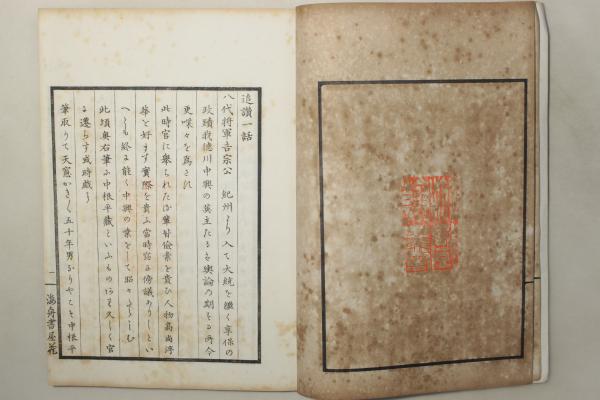 追讃一話
八代将軍吉宗公 紀州より入て大統を継く享保の
政蹟我徳川中興の英主たるも輿論の期する所今
更喋々を為さす
此時官に挙られたる輩皆倹素を貴ひ人物高尚浮
華を好ます實際を貴ふ當時窃に傍議ありしとい
へとも終に能く中興の業をして昭々たらしむ
此頃奥右筆に中根平蔵といふものあり久しく官
に遷らす或時戯に
筆取りて天窓かきく五十年男なりやこそ中根平
一
海舟書屋